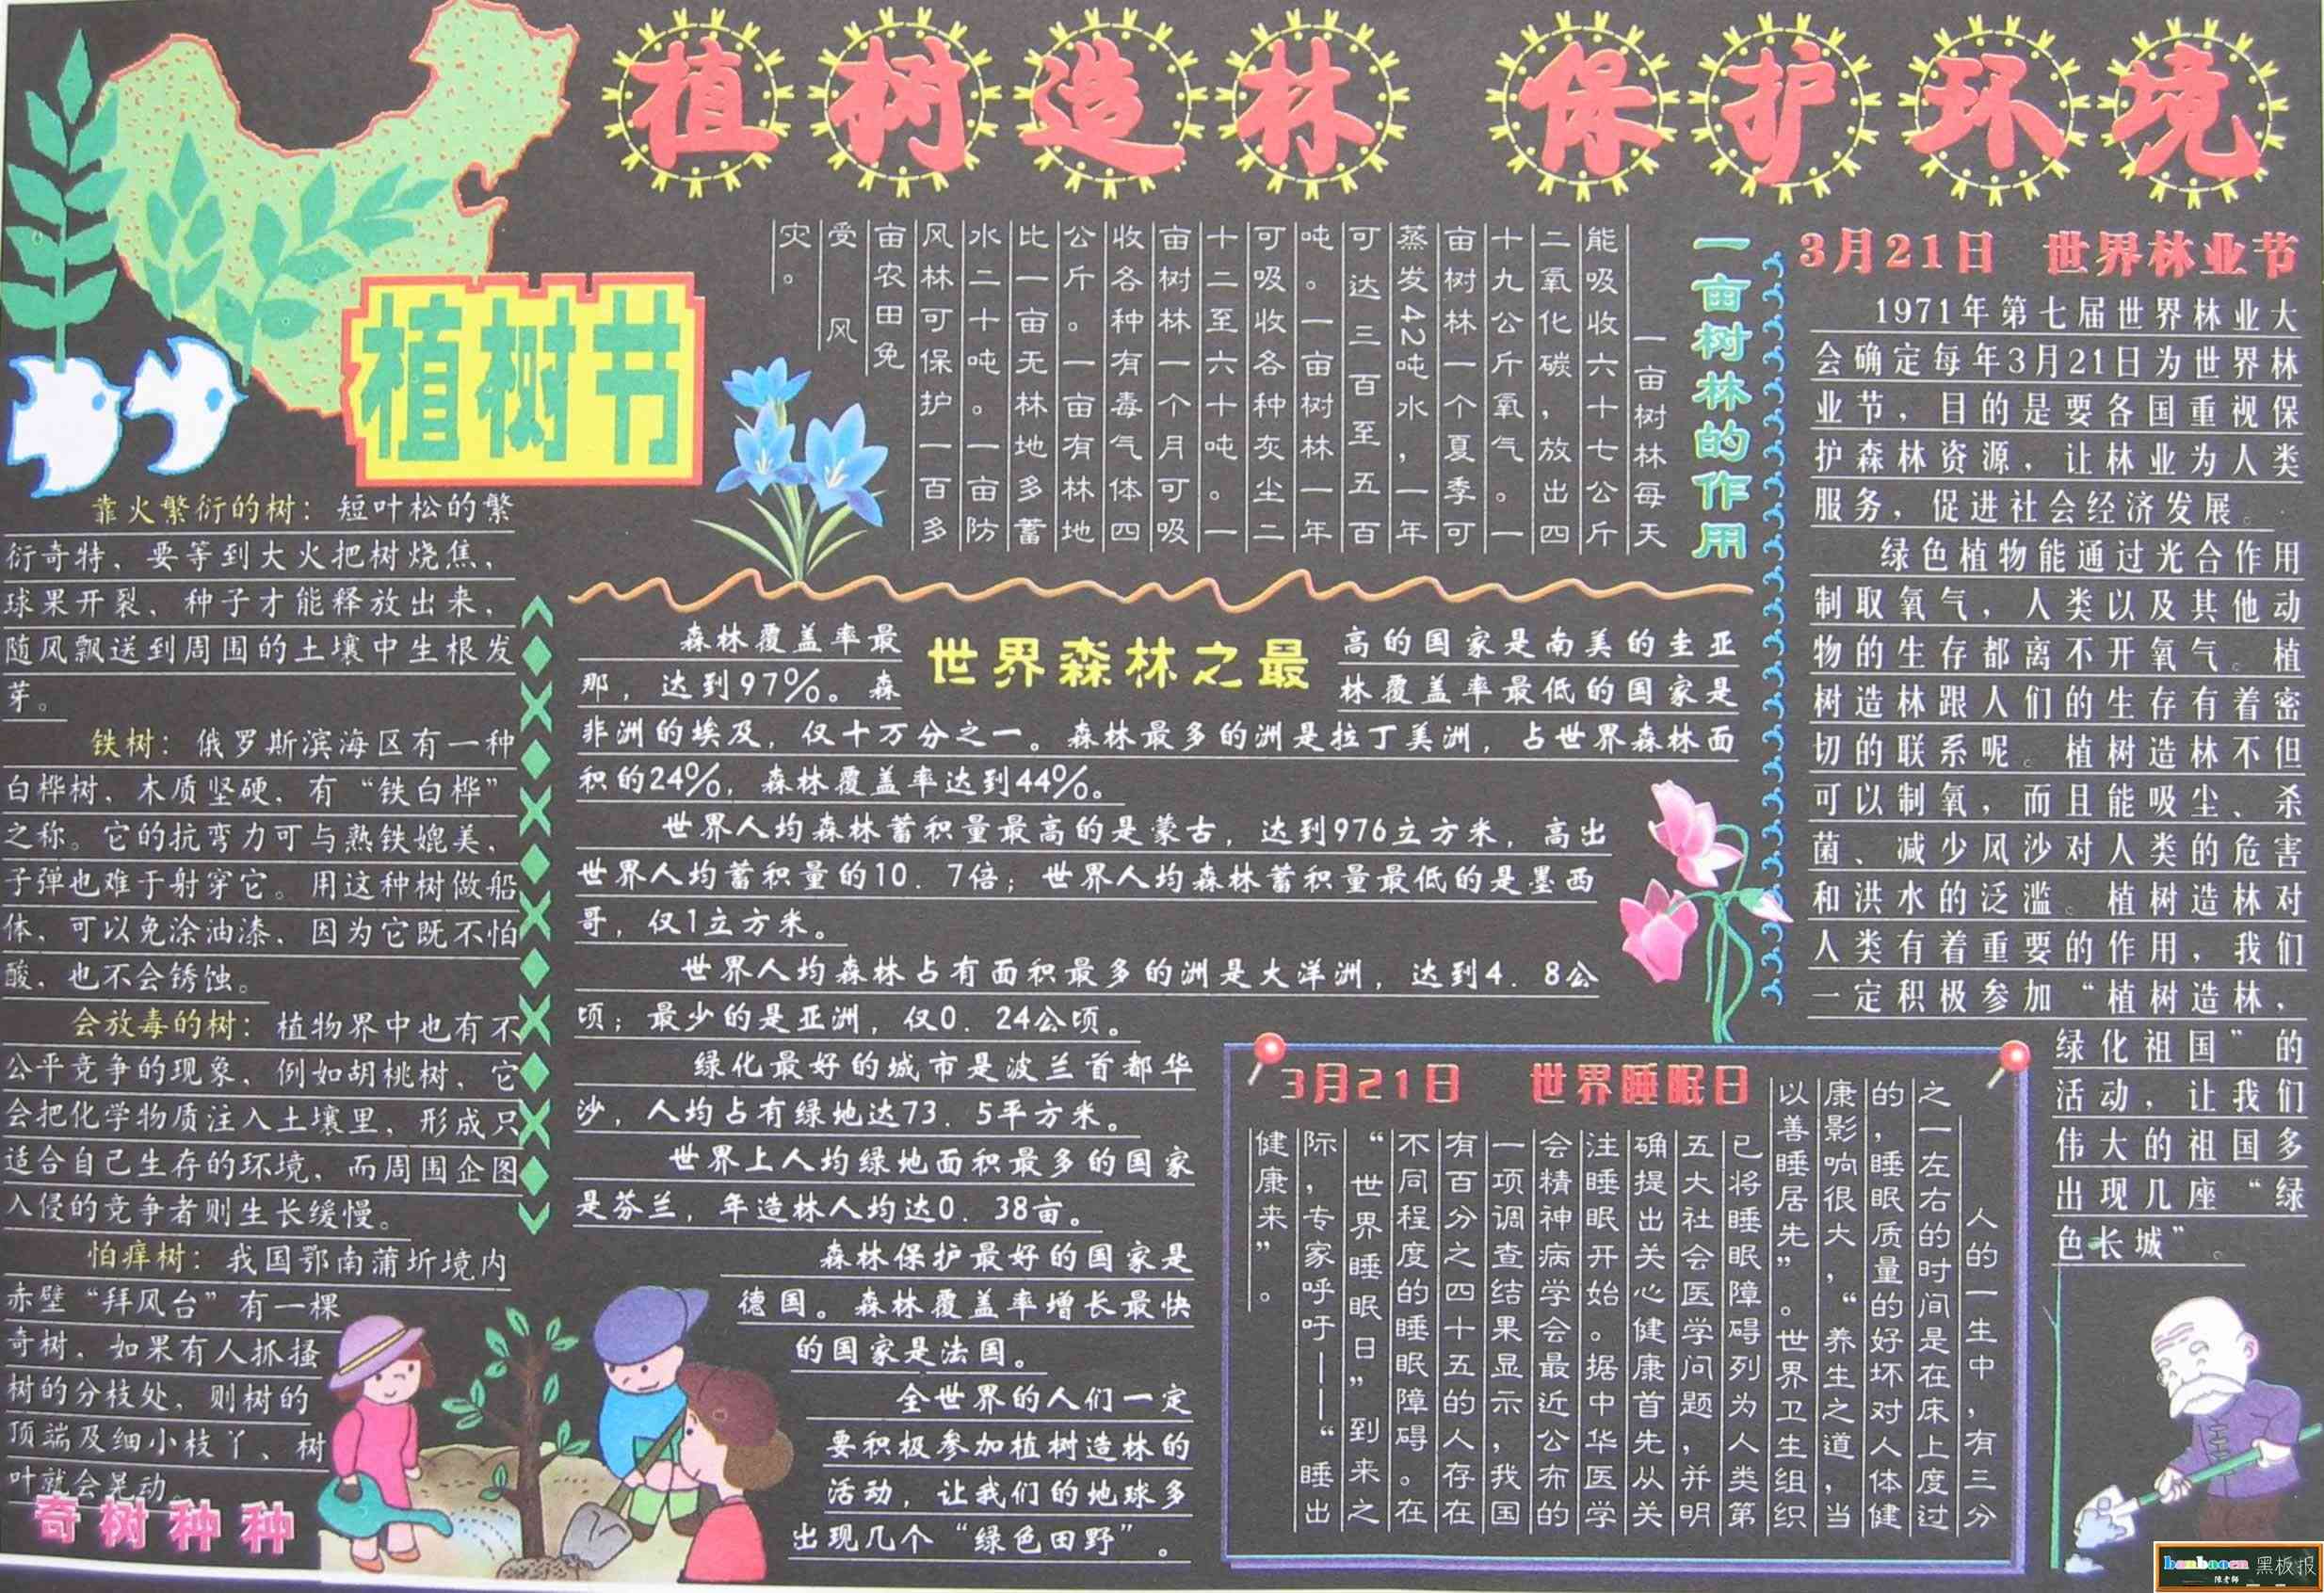 植树造林 保护环境
植树节
一亩树林的作用
一亩树林每天
能吸收六十七公斤
二氧化碳，放出四
十九公斤氧气。一
亩树林一个夏季可
蒸发42吨水，一年
可达三百至五百
吨。一亩树林一年
可吸收各种灰尘二
十二至六十吨。一
亩树林一个月可吸
收各种有毒气体四
公斤。一亩有林地
比一亩无林地多蓄
水二十吨。一亩防
风林可保护一百多
亩农田免
受风
灾。
3月21日 世界林业节
1971年第七届世界林业大
会确定每年3月21日为世界林
业节，目的是要各国重视保
护森林资源，让林业为人类
服务，促进社会经济发展。
绿色植物能通过光合作用
制取氧气，人类以及其他动
物的生存都离不开氧气。植
树造林跟人们的生存有着密
切的联系呢。植树造林不但
可以制氧，而且能吸尘、杀
菌、减少风沙对人类的危害
和洪水的泛滥。植树造林对
人类有着重要的作用，我们
一定积极参加“植树造林，
绿化祖国”的
活动，让我们
伟大的祖国多
出现几座“绿
色长城”。
靠火繁衍的树：短叶松的繁
衍奇特，要等到大火把树烧焦，
球果开裂，种子才能释放出来，
随风飘送到周围的土壤中生根发
芽。
铁树：俄罗斯滨海区有一种
白桦树，木质坚硬，有“铁白桦”
之称。它的抗弯力可与熟铁媲美，
子弹也难于射穿它。用这种树做船
体，可以免涂油漆，因为它既不怕
酸，也不会锈蚀。
会放毒的树：植物界中也有不
公平竞争的现象，例如胡桃树，它
会把化学物质注入土壤里，形成只
适合自己生存的环境，而周围企图
入侵的竞争者则生长缓慢。
怕痒树：我国鄂南蒲圻境内
赤壁“拜风台”有一棵
奇树，如果有人抓搔
树的分枝处，则树的
顶端及细小枝丫、树
叶就会晃动。
奇树种种
世界森林之最
森林覆盖率最高的国家是南美的圭亚
那，达到97%。森林覆盖率最低的国家是
非洲的埃及，仅十万分之一。森林最多的洲是拉丁美洲，占世界森林面
积的24%，森林覆盖率达到44%。
世界人均森林蓄积量最高的是蒙古，达到976立方米，高出
世界人均蓄积量的10．7倍；世界人均森林蓄积量最低的是墨西
哥，仅1立方米。
世界人均森林占有面积最多的洲是大洋洲，达到4．8公
顷；最少的是亚洲，仅0．24公顷。
绿化最好的城市是波兰首都华
沙，人均占有绿地达73．5平方米。
世界上人均绿地面积最多的国家
是芬兰，年造林人均达0．38亩。
森林保护最好的国家是
德国。森林覆盖率增长最快
的国家是法国。
全世界的人们一定
要积极参加植树造林的
活动，让我们的地球多
出现几个“绿色田野”。
3月21日 世界睡眠日
人的一生中，有三分
之一左右的时间是在床上度过
的，睡眠质量的好坏对人体健
康影响很大，“养生之道，当
以善睡居先”。世界卫生组织
已将睡眠障碍列为人类第
五大社会医学问题，并明
确提出关心健康首先从关
注睡眠开始。据中华医学
会精神病学会最近公布的
一项调查结果显示，我国
有百分之四十五的人存在
不同程度的睡眠障碍。在
“世界睡眠日”到来之
际，专家呼吁——“睡出
健康来”。
banbaocn 黑板报
陈老师